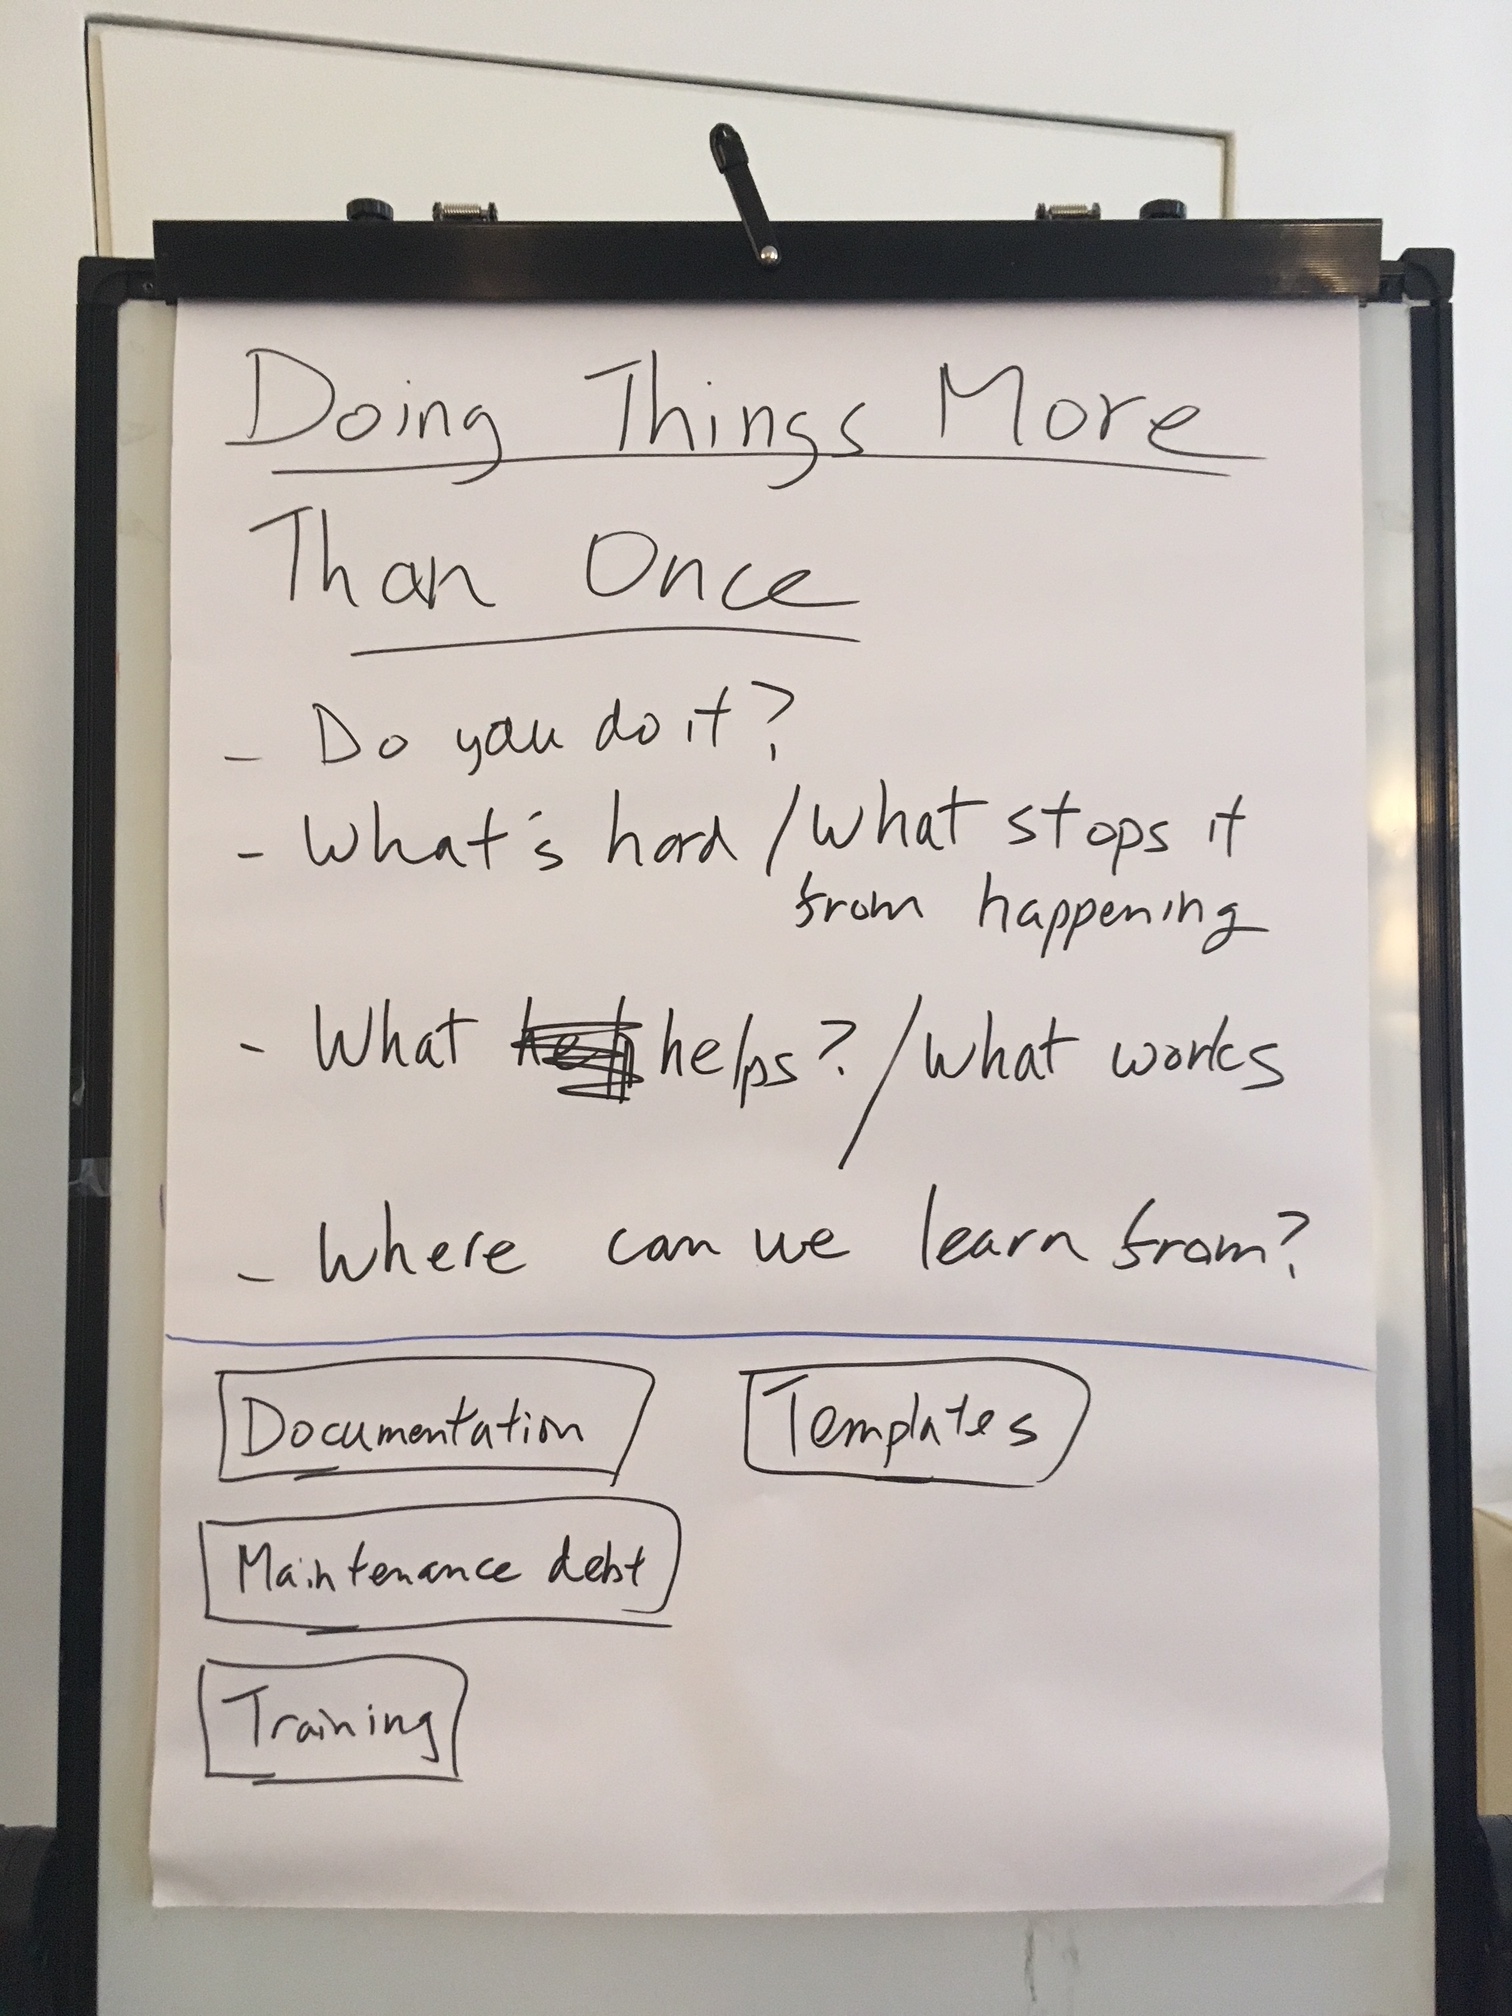 Doing Things More
Than Once
- Do you do it?
- What's hard / What stops it
from happening
- What helps? / What works
- Where can we learn from?
Documentation Templates
Maintenance debt
Training